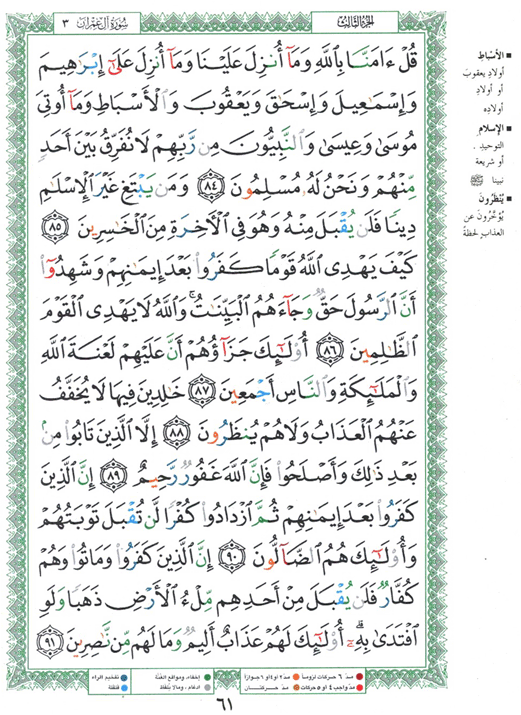 سُورَةُ آلِ عِمْرَان ٣
الجُزْءُ الثَّالِث
قُلْ ءَامَنَّا بِٱللَّهِ وَمَآ أُنزِلَ عَلَيْنَا وَمَآ أُنزِلَ عَلَىٰٓ إِبْرَٰهِيمَ
وَإِسْمَٰعِيلَ وَإِسْحَٰقَ وَيَعْقُوبَ وَٱلْأَسْبَاطِ وَمَآ أُوتِىَ
مُوسَىٰ وَعِيسَىٰ وَٱلنَّبِيُّونَ مِن رَّبِّهِمْ لَا نُفَرِّقُ بَيْنَ أَحَدٍ
مِّنْهُمْ وَنَحْنُ لَهُۥ مُسْلِمُونَ ٨٤ وَمَن يَبْتَغِ غَيْرَ ٱلْإِسْلَٰمِ
دِينًا فَلَن يُقْبَلَ مِنْهُ وَهُوَ فِى ٱلْأَخِرَةِ مِنَ ٱلْخَٰسِرِينَ ٨٥
كَيْفَ يَهْدِى ٱللَّهُ قَوْمًا كَفَرُوا۟ بَعْدَ إِيمَٰنِهِمْ وَشَهِدُوٓا۟
أَنَّ ٱلرَّسُولَ حَقٌّ وَجَآءَهُمُ ٱلْبَيِّنَٰتُ ۚ وَٱللَّهُ لَا يَهْدِى ٱلْقَوْمَ
ٱلظَّٰلِمِينَ ٨٦ أُو۟لَٰٓئِكَ جَزَآؤُهُمْ أَنَّ عَلَيْهِمْ لَعْنَةَ ٱللَّهِ
وَٱلْمَلَٰٓئِكَةِ وَٱلنَّاسِ أَجْمَعِينَ ٨٧ خَٰلِدِينَ فِيهَا لَا يُخَفَّفُ
عَنْهُمُ ٱلْعَذَابُ وَلَا هُمْ يُنظَرُونَ ٨٨ إِلَّا ٱلَّذِينَ تَابُوا۟ مِنۢ
بَعْدِ ذَٰلِكَ وَأَصْلَحُوا۟ فَإِنَّ ٱللَّهَ غَفُورٌ رَّحِيمٌ ٨٩ إِنَّ ٱلَّذِينَ
كَفَرُوا۟ بَعْدَ إِيمَٰنِهِمْ ثُمَّ ٱزْدَادُوا۟ كُفْرًا لَّن تُقْبَلَ تَوْبَتُهُمْ
وَأُو۟لَٰٓئِكَ هُمُ ٱلضَّآلُّونَ ٩٠ إِنَّ ٱلَّذِينَ كَفَرُوا۟ وَمَاتُوا۟ وَهُمْ
كُفَّارٌ فَلَن يُقْبَلَ مِنْ أَحَدِهِم مِّلْءُ ٱلْأَرْضِ ذَهَبًا وَلَوِ
ٱفْتَدَىٰ بِهِۦٓ ۗ أُو۟لَٰٓئِكَ لَهُمْ عَذَابٌ أَلِيمٌ وَمَا لَهُم مِّن نَّٰصِرِينَ ٩١
الأسباط
أولاد يعقوب
أو أولاد
أولاده
الإسلام
التوحيد .
أو شريعة
نبينا ﷺ
يُنْظَرُونَ
يُؤخَّرُونَ عن
العذاب لحظة
مدّ ٦ حركات لزوماً
مدّ ٢ أو ٤ أو ٦ جوازاً
إخفاء، ومواقع الغُنَّة
تفخيم الراء
مدّ واجب ٤ أو ٥ حركات
مدّ حركتان
ادغام ، ومالا يلفظ
قلقلة
٦١